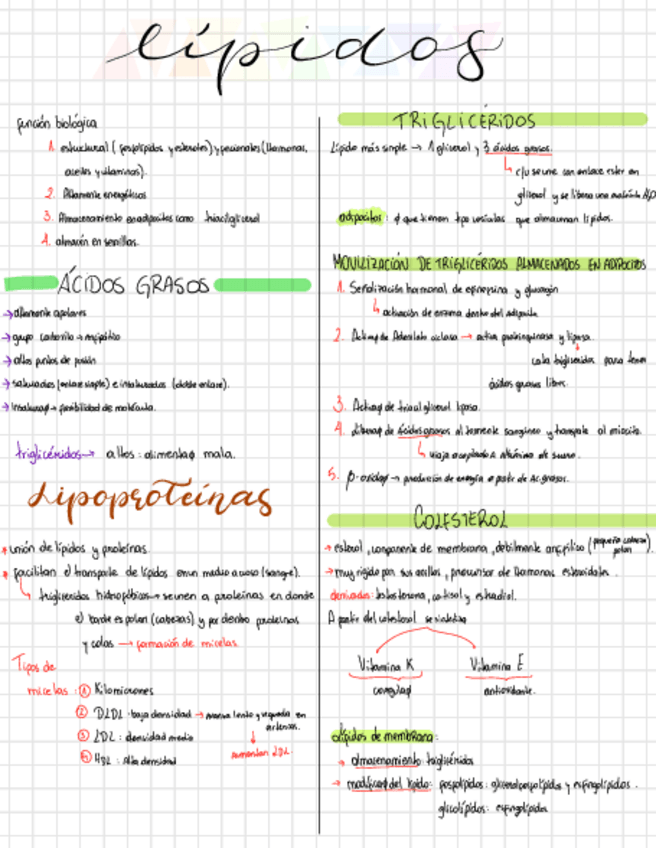 lípidos
función biológica
1. estructural (fosfolípidos y esteroles) y funcionales (Hormonas,
aceites y vitaminas).
2. Altamente energéticos
3. Almacenamiento en adipocitos como triacilglicerol
4. almacén en semillas.
ÁCIDOS GRASOS
→ altamente apolares
→ grupo carboxilo → anfipático
→ altos puntos de fusión
→ saturados (enlace simple) e insaturados (doble enlace).
→ Insaturaç → flexibilidad de molécula.
triglicéridos → altos: alimentaç mala.
Lipoproteínas
unión de lípidos y proteínas.
facilitan el transporte de lípidos en un medio acuoso (sangre).
triglicéridos hidrofóbicos → se unen a proteínas en donde
el borde es polar (cabezas) y por dentro proteínas
y colas → formación de micelas.
Tipos de
micelas: ① Kilomicrones
② : baja densidad → lento y se queda en
arterias.
③ LDL: densidad media
aumentan LDL.
④ HDL: Alta densidad
TRIGLICÉRIDOS
Lípido más simple → 1 glicerol y 3 ácidos grasos.
c/u se une con enlace ester en
glicerol y se libera una molécula H2O
adipocitos: que tienen tipo vesículas que almacenan lípidos.
MOVILIZACIÓN DE TRIGLICÉRIDOS ALMACENADOS EN ADIPOCITOS
1. Señalización hormonal de epinefrina y glucagón
activación de enzima dentro del adipocito
2. Activaç de Adenilato ciclasa → activa proteinquinasa y lipasa
corta triglicéridos para tener
ácidos grasos libres.
3. Activaç de triacilglicerol lipasa.
4. Liberaç de ácidos grasos al torrente sanguíneo y transporte al miocito.
viaja acoplado a albúmina de suero.
5. β-oxidaç → producción de energía a partir de Ac. grasos.
COLESTEROL
→ esterol, componente de membrana, débilmente anfifílico (pequeña cabeza
polar)
→ muy rígido por sus anillos, precursor de hormonas esteroidales.
derivados: testosterona, cortisol y estradiol.
A partir del colesterol se sintetiza
Vitamina K Vitamina E
coagulaç antioxidante.
Lípidos de membrana:
→ almacenamiento: triglicéridos
→ modificaç del lípido: fosfolípidos: glicerofosfolípidos y esfingolípidos.
glicolípidos: esfingolípidos